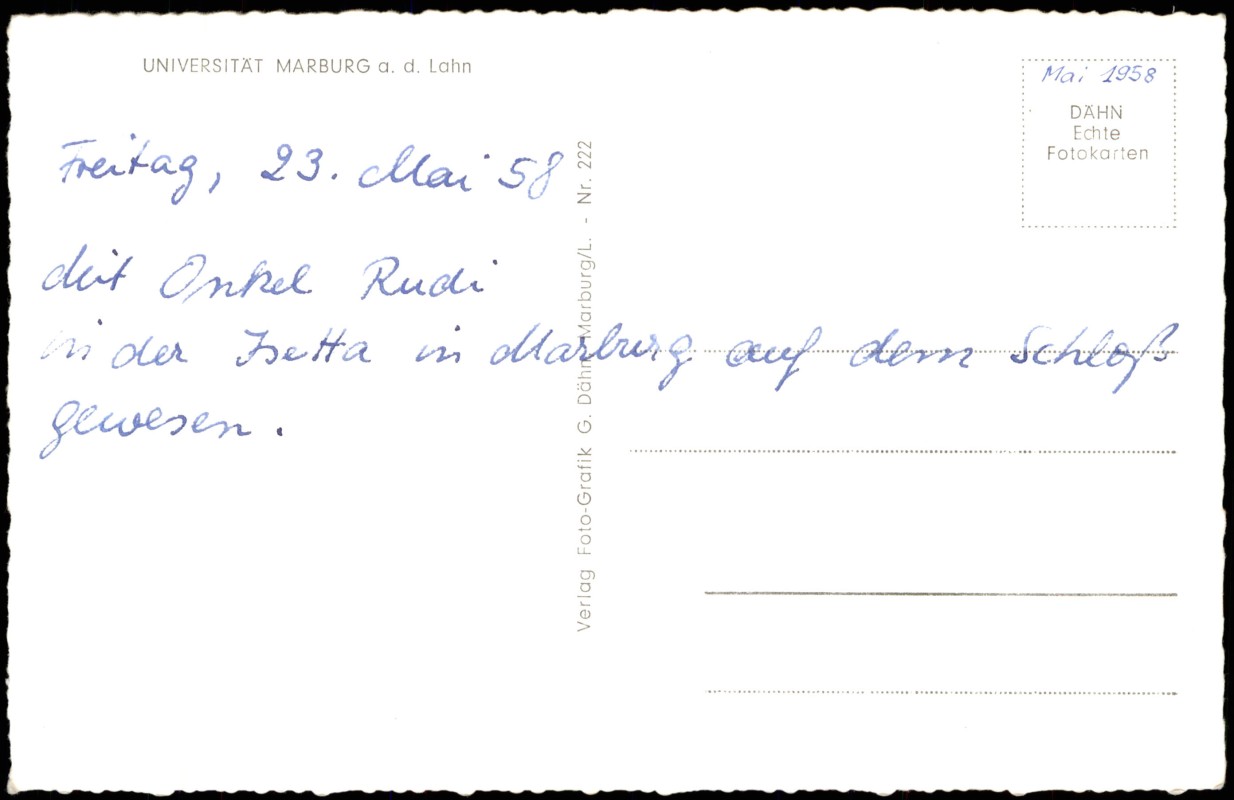 UNIVERSITÄT MARBURG a. d. Lahn
Mai 1958
DÄHN
Echte
Fotokarten
Freitag, 23. Mai 58
Mit Onkel Rudi
in der Isetta in Marburg auf dem Schloß
gewesen.
Verlag Foto-Grafik G. Dähn Marburg/L. - Nr. 222